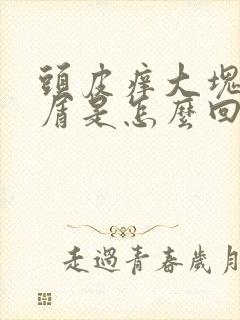 頭皮痒大塊
屑是怎麼回
走過青春歲月